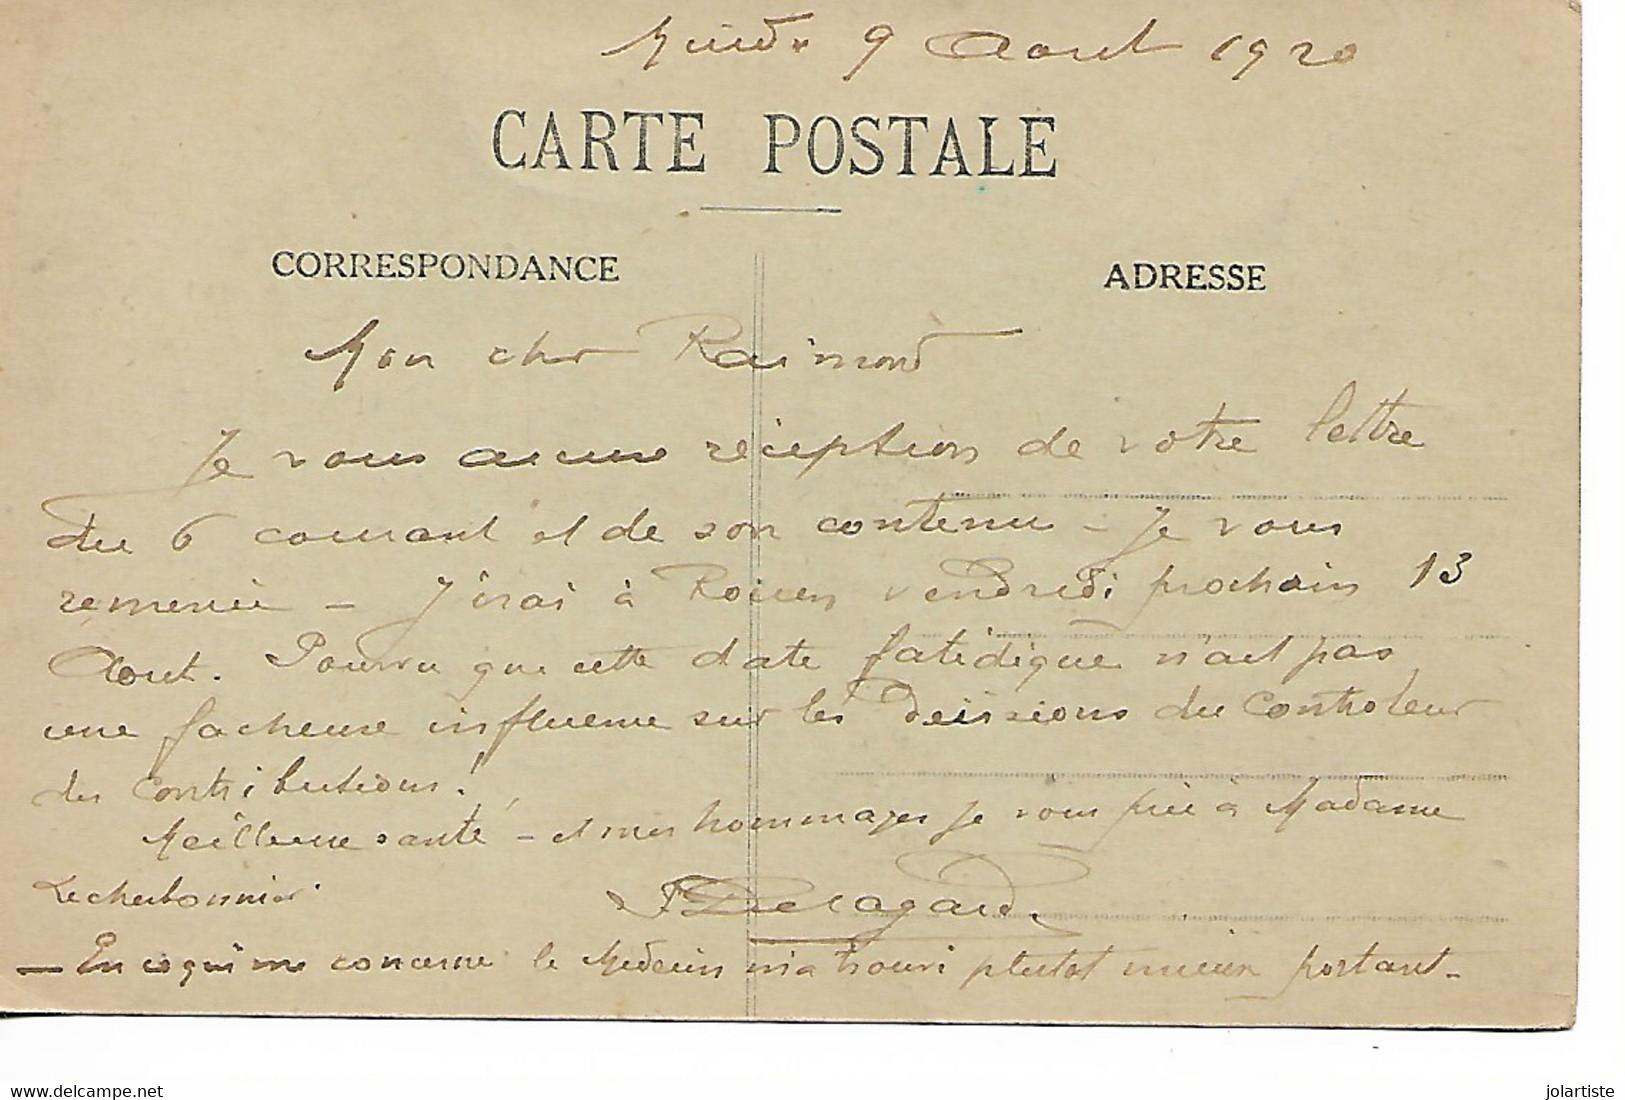 9 Aout 1920
CARTE POSTALE
CORRESPONDANCE
ADRESSE
Mon cher Raimond
Je vous accuse réception de votre lettre
du 6 courant et de son contenu - Je vous
remercie - J'irai à Rouen vendredi prochain 13
Aout. Pourvu que cette date fatidique n'ait pas
une facheuse influence sur les Décisions du Controleur
des Contributions!
Meilleure santé - et mes hommages je vous prie à Madame
Lecherbonnier.
- En ce qui me concerne le Médecin m'a trouvé plutot mieux portant -
delcampe.net
jolartiste